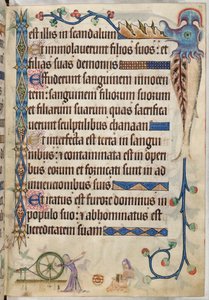 est illis in scandalum
Et immolauerunt filios suos: et
filias suas demoniis
Effuderunt sanguinem innocen
tem: sanguinem filiorum suorum
et filiarum suarum quas sacrifica
uerunt sculptilibus chanaan
Et interfecta est terra in sangui
nibus: et contaminata est in operi
bus eorum et fornicati sunt in ad
inuencionibus suis
Et iratus est furore dominus in
populo suo: et abhominatus est
hereditatem suam